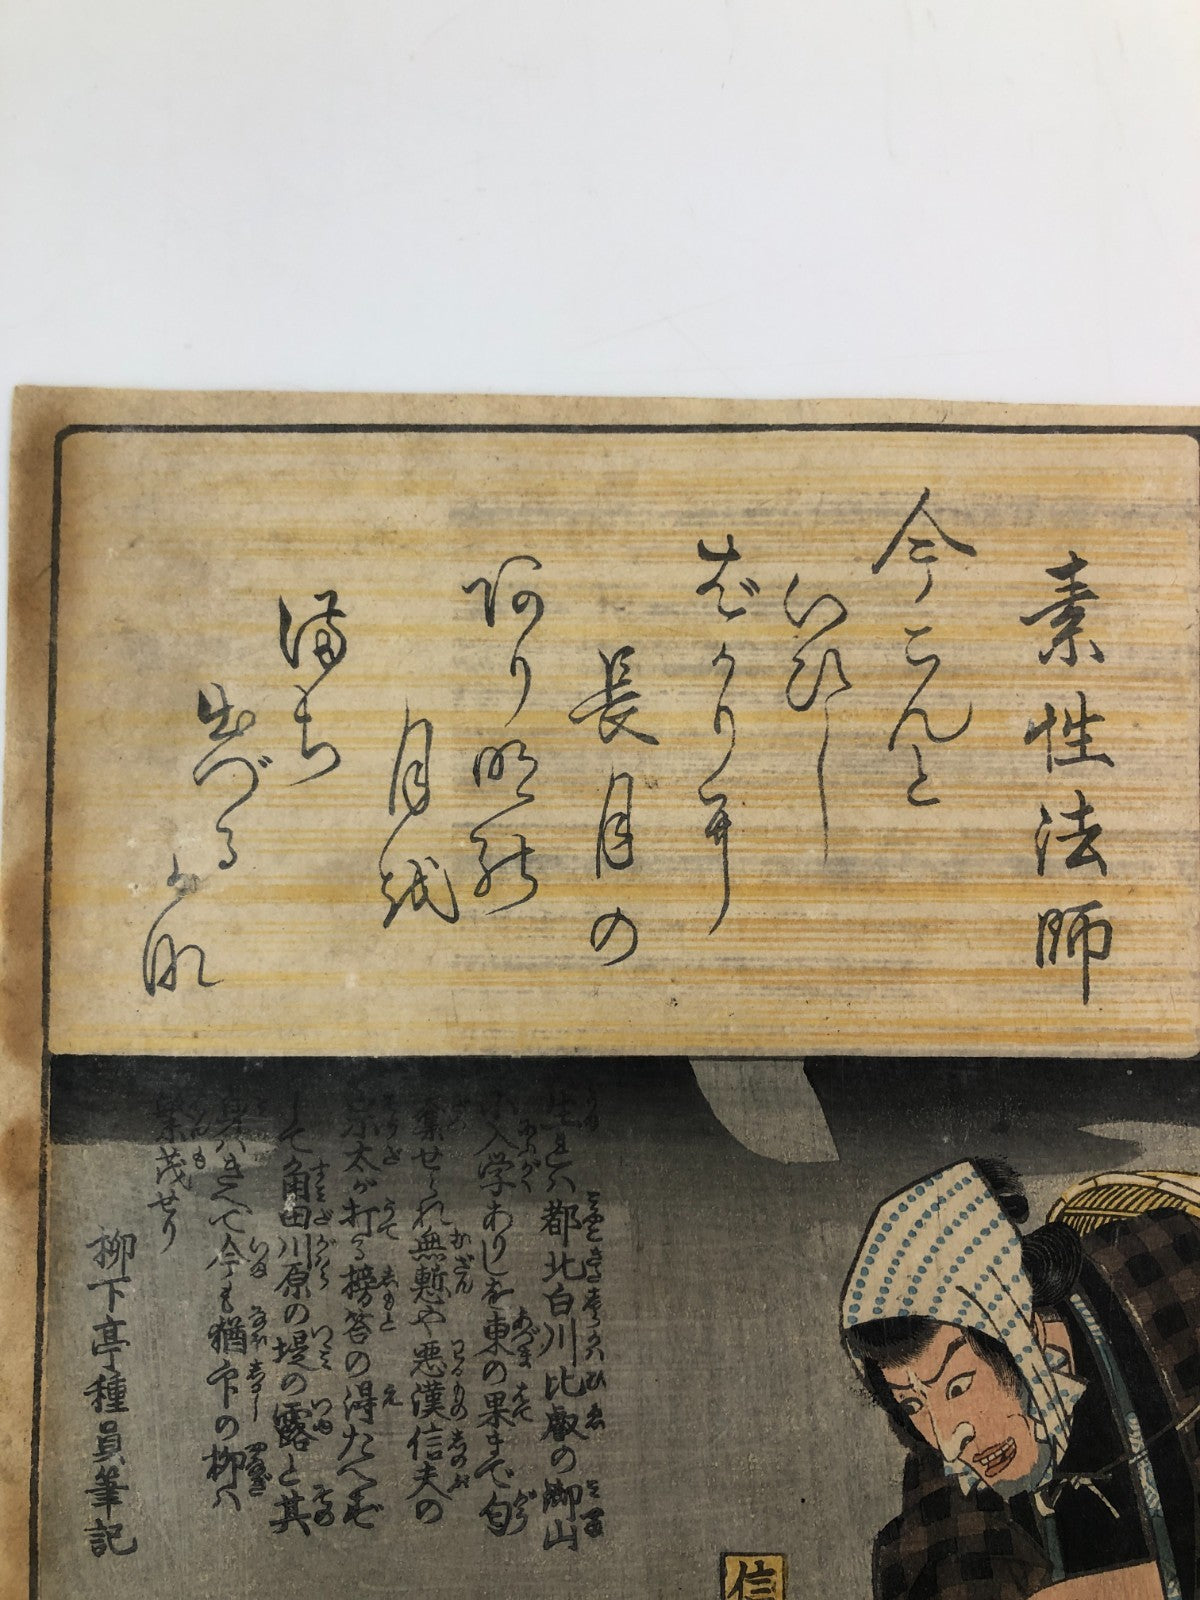 素性法師
今こんと
いひし
ばかりに
長月の
阿り明能
月越
満ち
出づる
か那
生れは都北白川比叡の御山
に入学ありしを東の果まで勾
引せられ無慙や悪漢信夫の
宗太が打る榜笞の得たへず
して角田川原の堤の露と其
身はきえて今も猶印の柳は
繁茂せり
柳下亭種員筆記
信